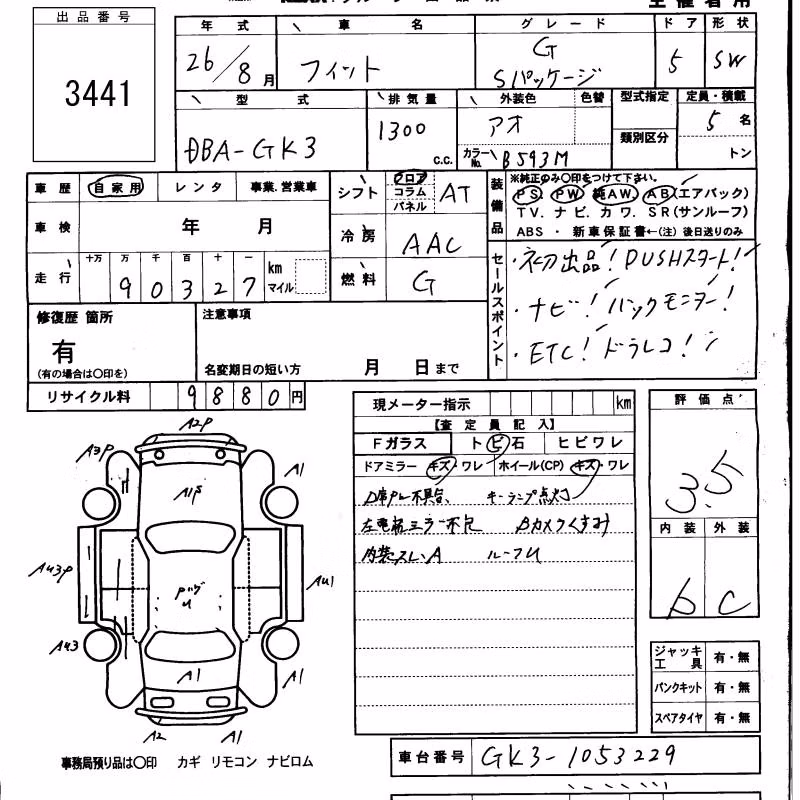 出品番号
3441
年式 車名 グレード ドア 形状
26/8月 フィット G Sパッケージ 5 SW
型式 排気量 外装色 色替 型式指定 定員・積載
DBA-GK3 1300 c.c. アオ 5名
カラーNo. B593M 類別区分 トン
車歴 自家用 レンタ 事業.営業車
シフト フロア コラム パネル AT
装備品 ※純正のみ〇印をつけて下さい。
PS. PW. 純AW. AB.(エアバック)
TV. ナビ. カワ. SR(サンルーフ)
ABS ・ 新車保証書←(注) 後日送りのみ
車検 年 月
冷房 AAC
走行 十万 万 千 百 十 一
90327 km マイル
燃料 G
セールスポイント
・初出品! PUSHスタート!
・ナビ! バックモニター!
・ETC! ドラレコ!
修復歴 箇所
有
(有の場合は〇印を)
注意事項
名変期日の短い方 月 日まで
リサイクル料 9880円
現メーター指示 km
【査定員記入】
Fガラス トビ石 ヒビワレ
ドアミラー キズ・ワレ ホイール(CP) キズ・ワレ
キーランプ点灯
Bカメラくすみ
内装スレ、A ルーフU
評価点
3.5
内装 外装
b C
ジャッキ工具 有・無
パンクキット 有・無
スペアタイヤ 有・無
A2P
A3P
A1
A1P
AU3P
AU1
U
AU3
A1
A1
A2
A1
事務局預り品は〇印 カギ リモコン ナビロム
車台番号 GK3-1053229